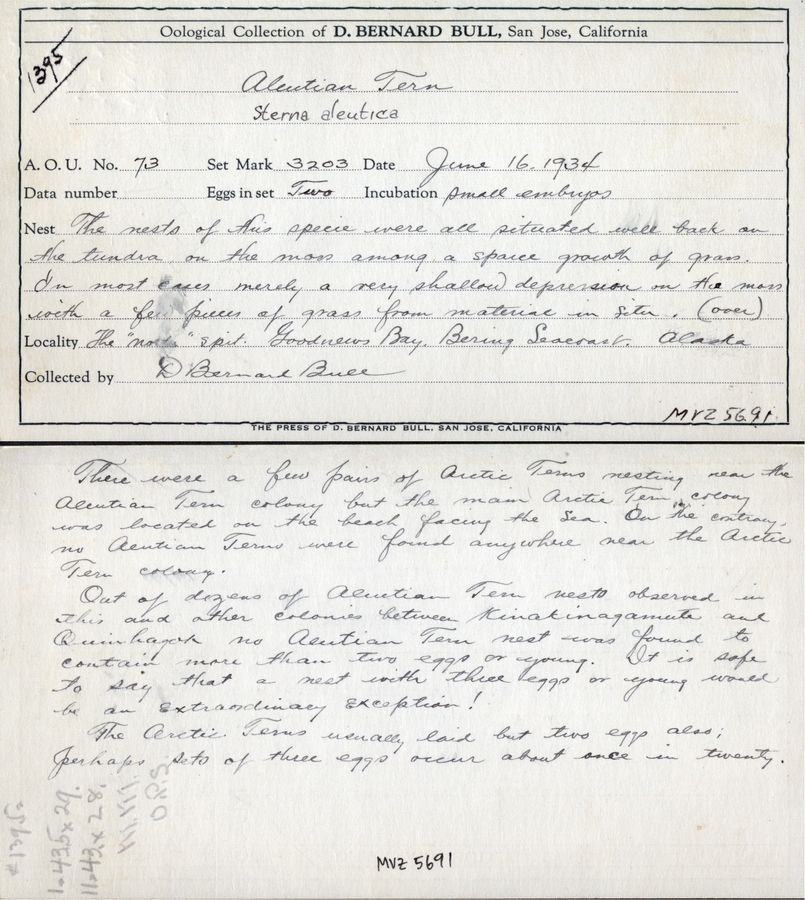 Oological Collection of D. BERNARD BULL, San Jose, California
1395
Aleutian Tern
Sterna aleutica
A. O. U. No. 73 Set Mark 3203 Date June 16. 1934
Data number Eggs in set Two Incubation small embryos
Nest The nests of this specie were all situated well back on
the tundra, on the moss among a sparce growth of grass.
In most cases merely a very shallow depression on the moss
with a few pieces of grass from material in situ. (over)
Locality The "north" Spit. Goodnews Bay. Bering Seacoast. Alaska
Collected by D Bernard Bull
MVZ 5691
THE PRESS OF D. BERNARD BULL. SAN JOSE, CALIFORNIA
There were a few pairs of Arctic Terns nesting near the
Aleutian Tern colony but the main Arctic Tern colony
was located on the beach facing the Sea. On the contrary,
no Aeutian Terns were found anywhere near the Arctic
Tern colony.
Out of dozens of Aleutian Tern nests observed in
this and other colonies between Kinakinagamute and
Quinhagak no Aeutian Tern nest was found to
contain more than two eggs or young. It is safe
to say that a nest with three eggs or young would
be an extraordinary exception!
The Arctic Terns usually laid but two eggs also;
perhaps sets of three eggs occur about once in twenty.
# 1395
1=43.5x29.
11=43x28.
O.R.S.
MVZ 5691